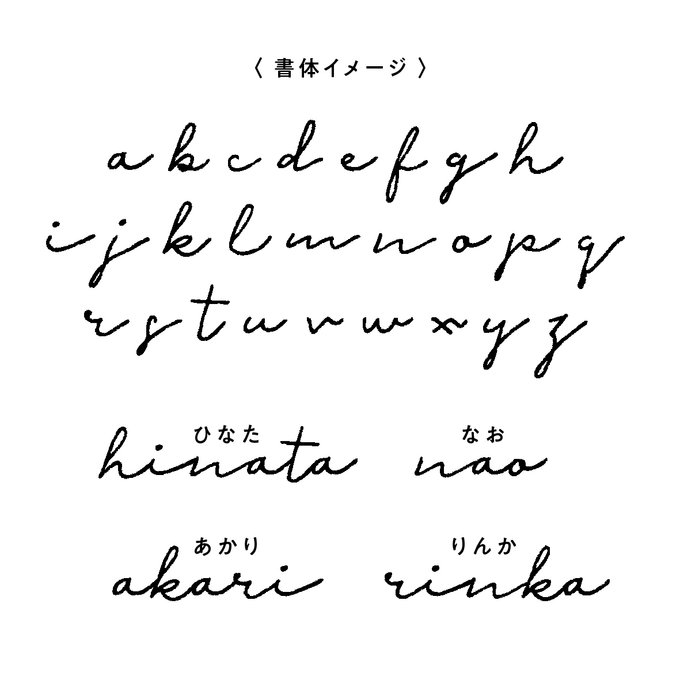 〈 書体イメージ 〉
a b c d e f g h
i j k l m n o p q
r s t u v w x y z
ひなた なお
hinata nao
あかり りんか
akari rinka